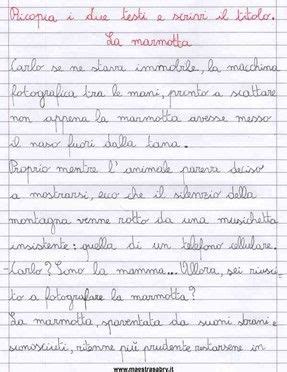 Ricopia i due testi e scrivi il titolo.
La marmotta
Carlo se ne stava immobile, la macchina
fotografica tra le mani, pronto a scattare
non appena la marmotta avesse messo
il naso fuori dalla tana.
Proprio mentre l'animale pareva deciso
a mostrarsi, ecco che il silenzio della
montagna venne rotto da una musichetta
insistente: quella di un telefono cellulare.
-Carlo? Sono la mamma... Allora, sei riusci-
to a fotografare la marmotta?
La marmotta, spaventata da suoni strani e
sconosciuti, ritenne più prudente restarsene in
www.maestrasabry.it